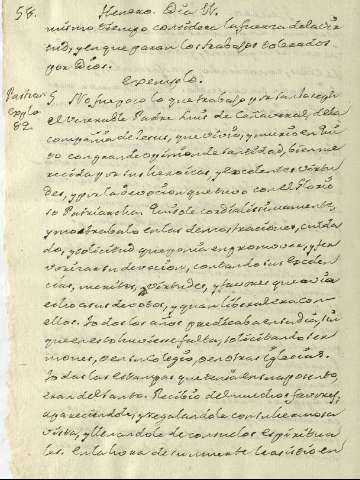 58. Henero. Dia 11.
mismo tiempo considera la fuerza de la vir
tud, y en que paran los trabajos tolerados
por Dios.
Exemplo.
Patriar
Explo
82.
5. No fue poco lo que trabajó y por su lo
el venerable Padre Luis de de la
Compañia de Jesus, que vivio, y murio en
con grande opinion de santidad, bien me
recida por sus heroicas, y excelentes virtu
des, y por la devocion que tuvo con el Glorio
so Patriarcha. cordialissimamente,
y mostrabalo en las demostraciones, cuida
do, y solicitud que ponia en promover, y
su devocion, contando sus excelen
cias, meritos, virtudes, y favores que avia
hecho a sus devotos, y quan liberal era con
ellos. Todos los años predicaba en su dia, sin
que en esto huviese falta, solicitando ser
mones, o en su Colegio, o en otras Iglesias.
Todas las estampas que tenia en su aposento
eran del Santo. Recibio del muchos favores,
apareciendole, y regalandole con su hermosa
vista, y llenandole de consuelos espiritua
les. En la hora de su muerte le asistio en